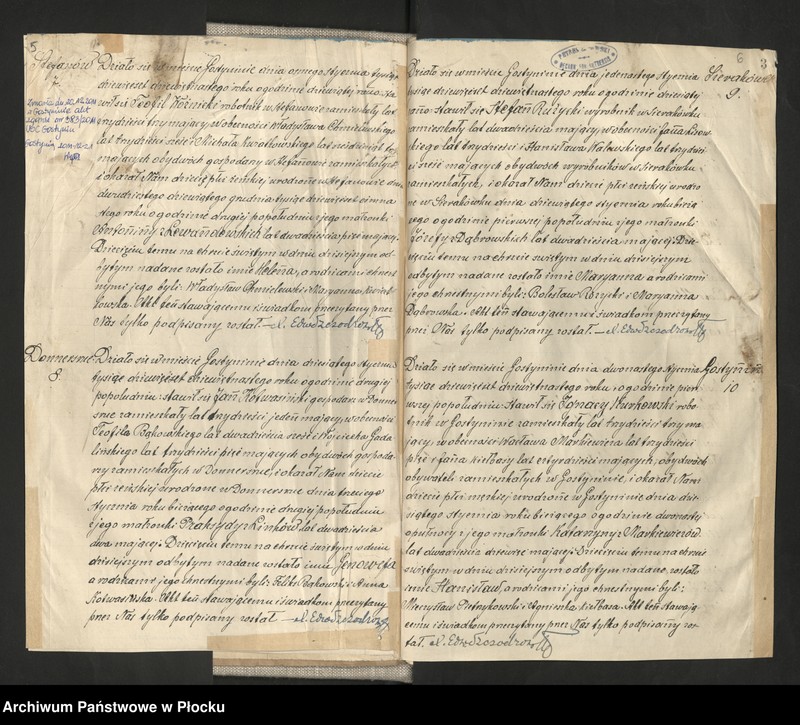 5
Stefanów
7.
Działo się w mieście Gostyninie dnia ósmego stycznia tysiąc
dziewięćset dziewiętnastego roku o godzinie dziewiątej rano. Sta-
wił się Teofil Koźnicki robotnik w Stefanowie zamieszkały lat
trzydzieści trzy mający, w obecności Władysława Chmielewskiego
lat trzydzieści sześć i Michała Kwiatkowskiego lat
mających obydwóch gospodarzy w Stefanowie zamieszkałych
i okazał Nam dziecię płci żeńskiej urodzone w Stefanowie dnia
dwudziestego dziewiątego grudnia tysiąc dziewięćset osiemna-
stego roku o godzinie drugiej popołudniu z jego małżonki
Antoniny z Lewandowskich lat dwadzieścia pięć mającej.
Dziecięciu temu na chrzcie świętym w dniu dzisiejszym od-
bytym nadane zostało imię Helena, a rodzicami chrzest-
nymi jego byli: Władysław Chmielewski i Maryanna Kwiat-
kowska. Akt ten stawającemu i świadkom przeczytany przez
Nas tylko podpisany został
Donnersme
8.
Działo się w mieście Gostyninie dnia dziesiątego stycznia
tysiąc dziewięćset dziewiętnastego roku o godzinie drugiej
popołudniu stawił się Jan Kotwasiński gospodarz w Donner-
sme zamieszkały lat trzydzieści jeden mający, w obecności
Teofila Bąkowskiego lat dwadzieścia sześć i Wojciecha Goda-
lińskiego lat trzydzieści pięć mających obydwóch gospoda-
rzy zamieszkałych w Donnersme, i okazał Nam dziecię
płci żeńskiej urodzone w Donnersme dnia trzeciego
stycznia roku bieżącego o godzinie drugiej popołudniu
z jego małżonki Praksydy z Linków lat dwadzieścia
dwa mającej. Dziecięciu temu na chrzcie świętym w dniu
dzisiejszym odbytym nadane zostało imię Genowefa
a rodzicami jego chrzestnymi byli: Feliks Bąkowski i Anna
Kotwasińska. Akt ten stawającemu i świadkom przeczytany
przez Nas tylko podpisany został
6
3
Sierakówek
9.
Działo się w mieście Gostyninie dnia jedenastego stycznia
tysiąc dziewięćset dziewiętnastego roku o godzinie dziesiątej
rano: stawił się Stefan Różycki wyrobnik w Sierakówku
zamieszkały lat dwadzieścia mający, w obecności Jana
lat trzydzieści i Stanisława Walewskiego lat trzydzie-
ści sześć mających obydwóch wyrobników w Sierakówku
zamieszkałych, i okazał Nam dziecię płci żeńskiej urodzo-
ne w Sierakówku dnia dziewiątego stycznia roku bieżą-
cego o godzinie pierwszej popołudniu z jego małżonki
Józefy z Dąbrowskich lat dwadzieścia mającej. Dzie-
cięciu temu na chrzcie świętym w dniu dzisiejszym
odbytym nadane zostało imię Maryanna a rodzicami
jego chrzestnymi byli: Bolesław Różycki i Maryanna
Dąbrowska. Akt ten stawającemu i świadkom przeczytany
przez Nas tylko podpisany został
Gostynin
10
Działo się w mieście Gostyninie dnia dwunastego stycznia
tysiąc dziewięćset dziewiętnastego roku o godzinie pier-
wszej popołudniu: stawił się Ignacy Kurkowski robo-
tnik w Gostyninie zamieszkały lat trzydzieści trzy ma-
jący, w obecności Wacława Markiewicza lat trzydzieści
pięć i Jana Kiełbasy lat czterdzieści mających, obydwóch
obywateli zamieszkałych w Gostyninie, i okazał Nam
dziecię płci męskiej urodzone w Gostyninie dnia dzie-
siątego stycznia roku bieżącego o godzinie dwunastej
w północy z jego małżonki Katarzyny z Markiewiczów
lat dwadzieścia dziewięć mającej. Dziecięciu temu na chrzcie
świętym w dniu dzisiejszym odbytym nadane zostało
imię Stanisław, a rodzicami jego chrzestnymi byli:
Mieczysław Pietrzykowski i Agnieszka Kiełbasa. Akt ten stawają-
cemu i świadkom przeczytany przez Nas tylko podpisany zos-
tał.
Archiwum Państwowe w Płocku